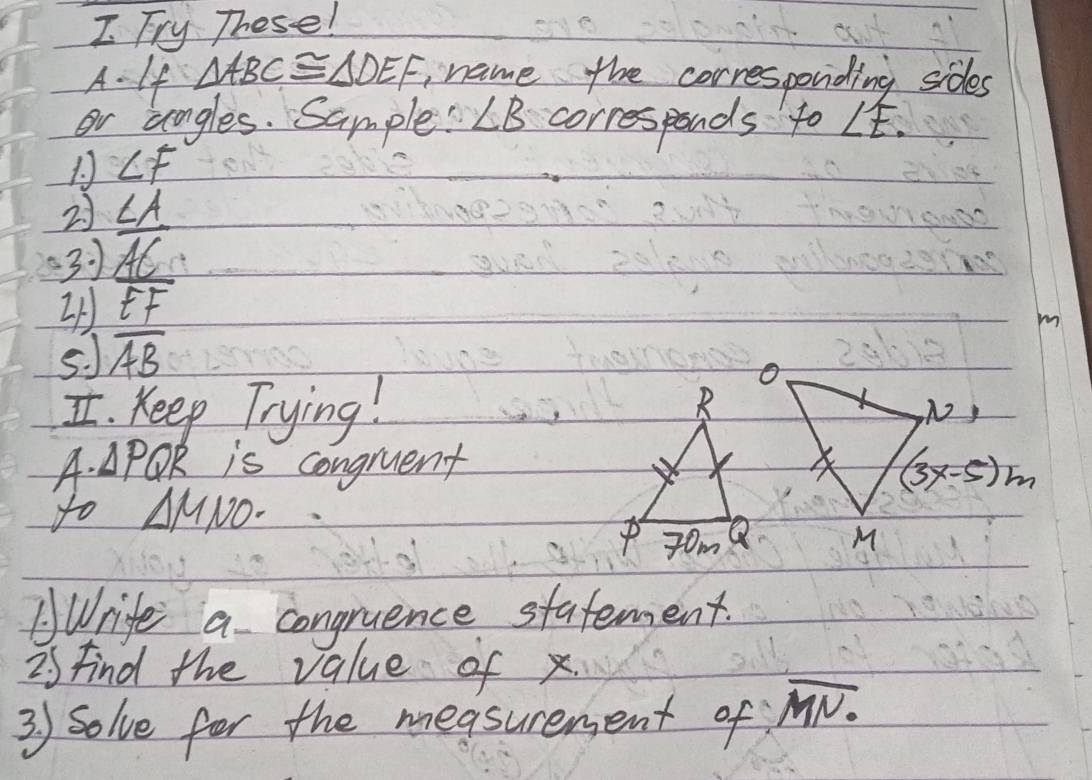 I. Try These!
A. If ΔABC ≅ ΔDEF, name the corresponding sides
or angles. Sample: ∠B corresponds to ∠E.
1.) ∠F
2.) ∠A
3.) A̅C̅
4.) E̅F̅
5.) A̅B̅
II. Keep Trying!
A. ΔPQR is congruent
to ΔMNO.
R
P 70m Q
O
N
(3x-5)m
M
m
1.) Write a congruence statement.
2.) Find the value of x.
3.) Solve for the measurement of M̅N̅.